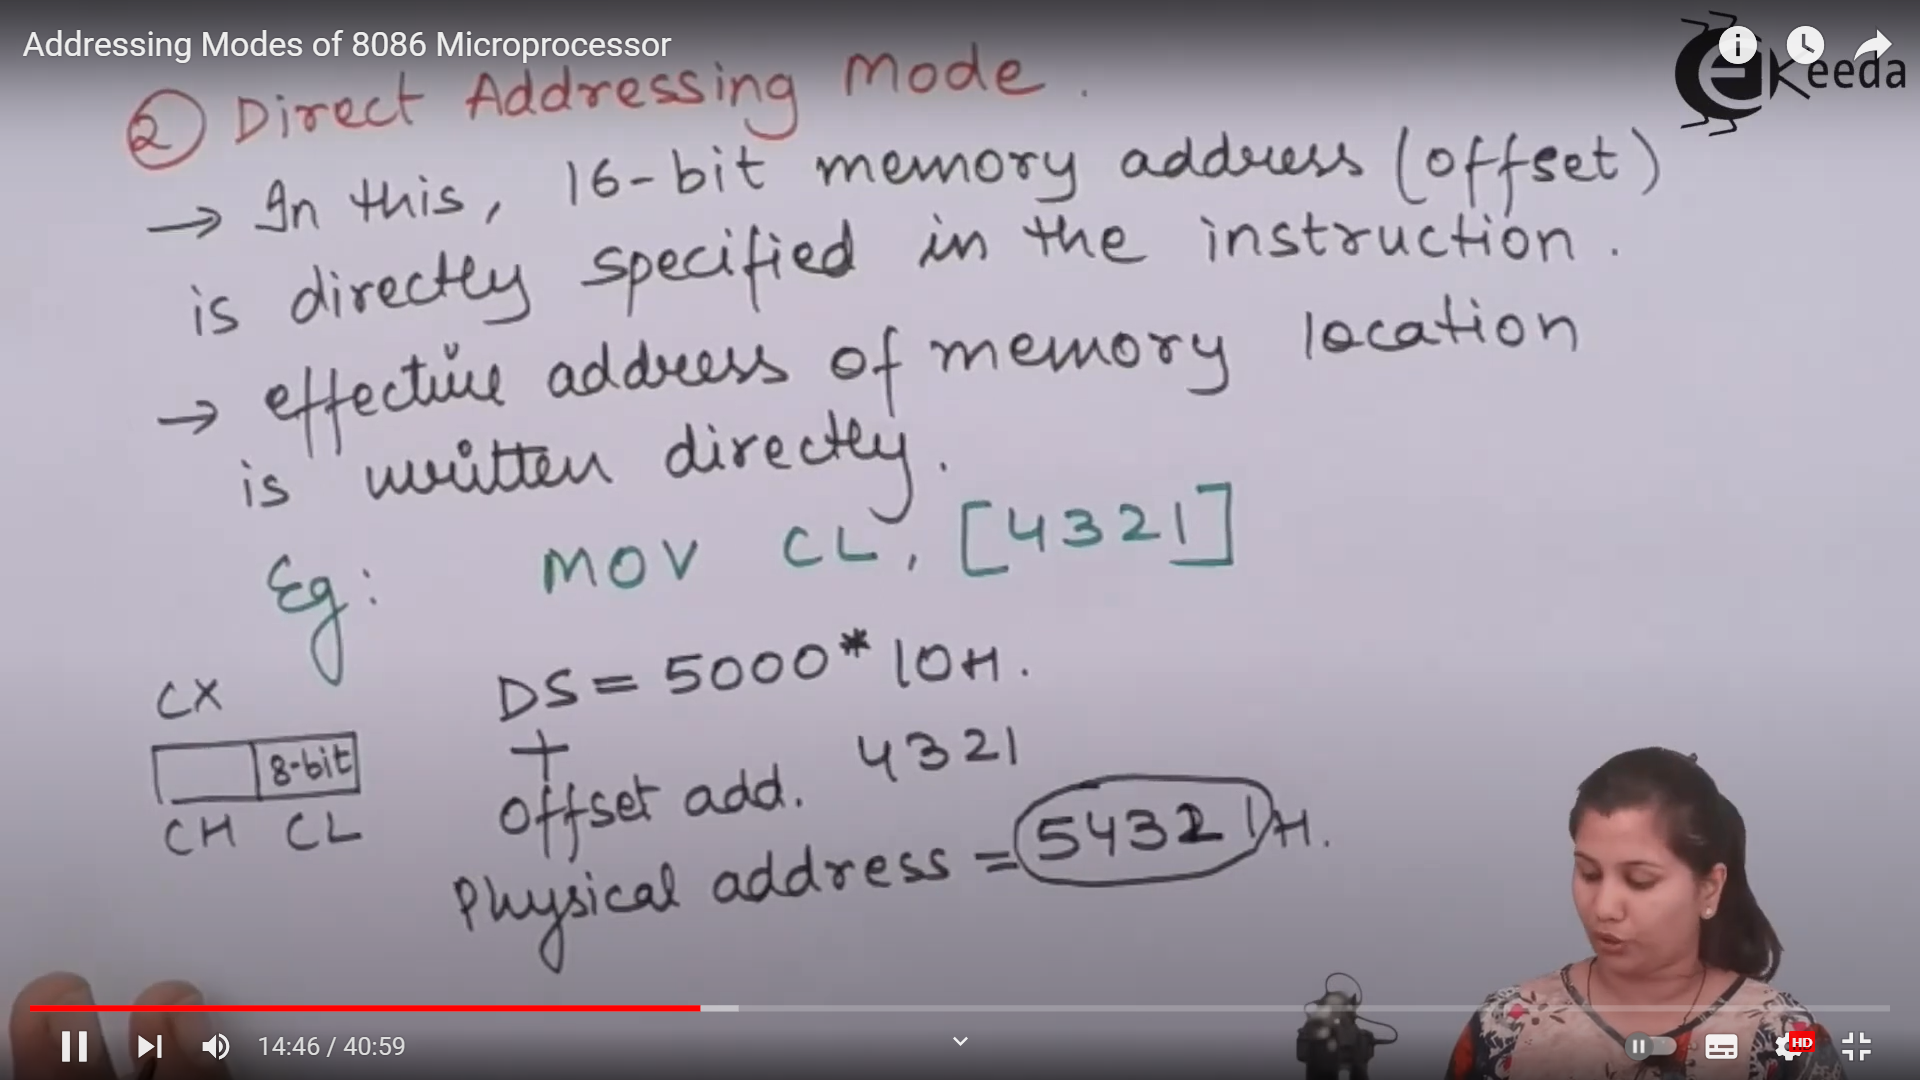 Addressing Modes of 8086 Microprocessor
eKeeda
② Direct Addressing Mode.
→ In this, 16-bit memory address (offset)
is directly specified in the instruction.
→ effective address of memory location
is written directly.
Eg: MOV CL, [4321]
CX
8-bit
CH CL
DS = 5000 * 10H.
+
Offset add. 4321
Physical address = 54321H.
14:46 / 40:59
HD